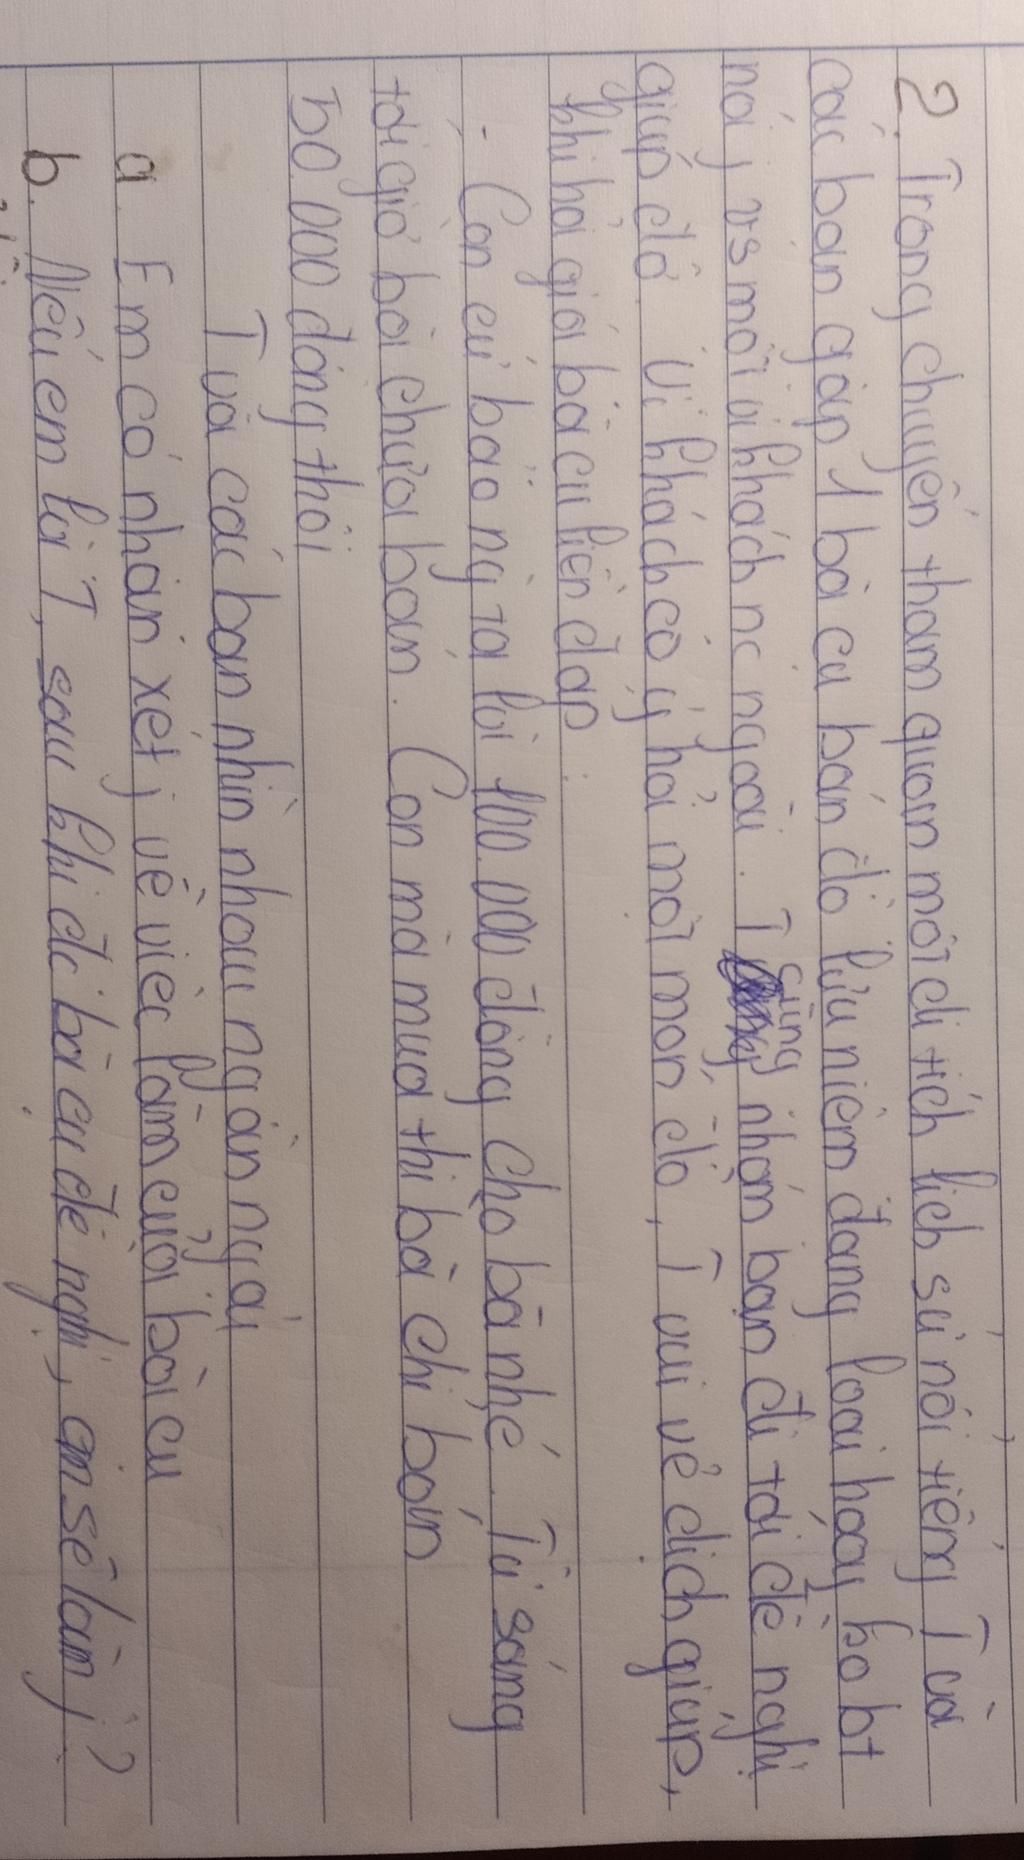 2. Trong chuyến tham quan một di tích lịch sử nổi tiếng, T và
các bạn gặp 1 bà cụ bán đồ lưu niệm đang loay hoay ko bt
nói j vs một vị khách nc ngoài. T cùng nhóm bạn đi tới đề nghị
giúp đỡ. Vị khách có ý hỏi một món đồ, T vui vẻ dịch giúp,
khi hỏi giá bà cụ liền đáp:
- Con cứ bảo ng ta là 100.000 đồng cho bà nhé. Từ sáng
tới giờ bà chưa bán. Con mà mua thì bà chỉ bán
50.000 đồng thôi
T và các bạn nhìn nhau ngần ngại
a. Em có nhận xét j về việc làm của bà cụ
b. Nếu em là T, sau khi đc bà cụ đề nghị, em sẽ làm j?